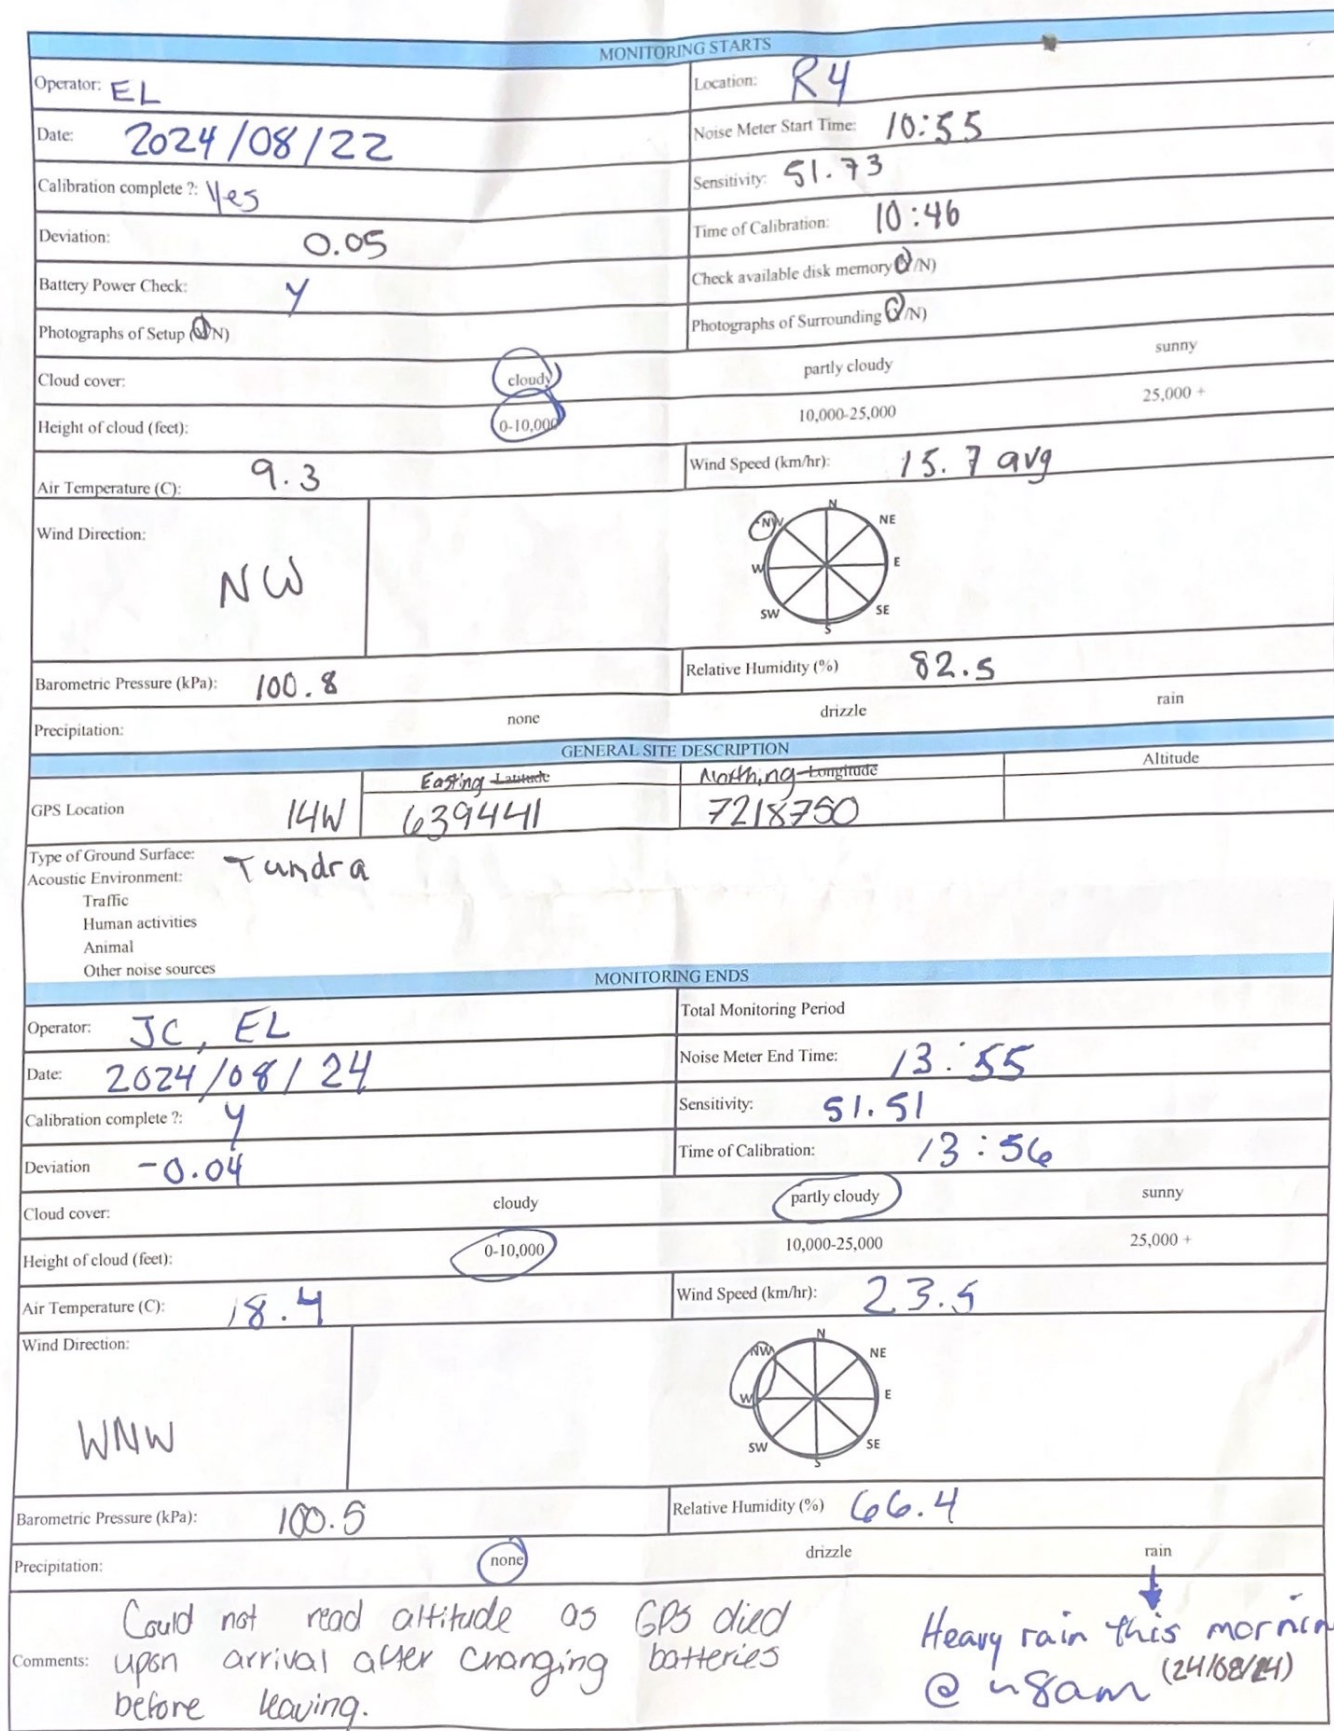 MONITORING STARTS
Operator: EL Location: R4
Date: 2024/08/22 Noise Meter Start Time: 10:55
Calibration complete ?: Yes Sensitivity: 51.73
Deviation: 0.05 Time of Calibration: 10:46
Battery Power Check: Y Check available disk memory (Y/N)
Photographs of Setup (Y/N) Photographs of Surrounding (Y/N)
Cloud cover: cloudy partly cloudy sunny
Height of cloud (feet): 0-10,000 10,000-25,000 25,000 +
Air Temperature (C): 9.3 Wind Speed (km/hr): 15.7 avg
Wind Direction: NW
N
NW NE
W E
SW SE
S
Barometric Pressure (kPa): 100.8 Relative Humidity (%) 82.5
Precipitation: none drizzle rain
GENERAL SITE DESCRIPTION
Easting Latitude Northing Longitude Altitude
GPS Location 14W 639441 7218750
Type of Ground Surface: Tundra
Acoustic Environment:
Traffic
Human activities
Animal
Other noise sources
MONITORING ENDS
Operator: JC, EL Total Monitoring Period
Date: 2024/08/24 Noise Meter End Time: 13:55
Calibration complete ?: Y Sensitivity: 51.51
Deviation -0.04 Time of Calibration: 13:56
Cloud cover: cloudy partly cloudy sunny
Height of cloud (feet): 0-10,000 10,000-25,000 25,000 +
Air Temperature (C): 18.4 Wind Speed (km/hr): 23.5
Wind Direction: WNW
N
NW NE
W E
SW SE
S
Barometric Pressure (kPa): 100.5 Relative Humidity (%) 66.4
Precipitation: none drizzle rain
Comments: Could not read altitude as GPS died
upon arrival after changing batteries
before leaving.
Heavy rain this mornin
@ ~8am (24/08/24)